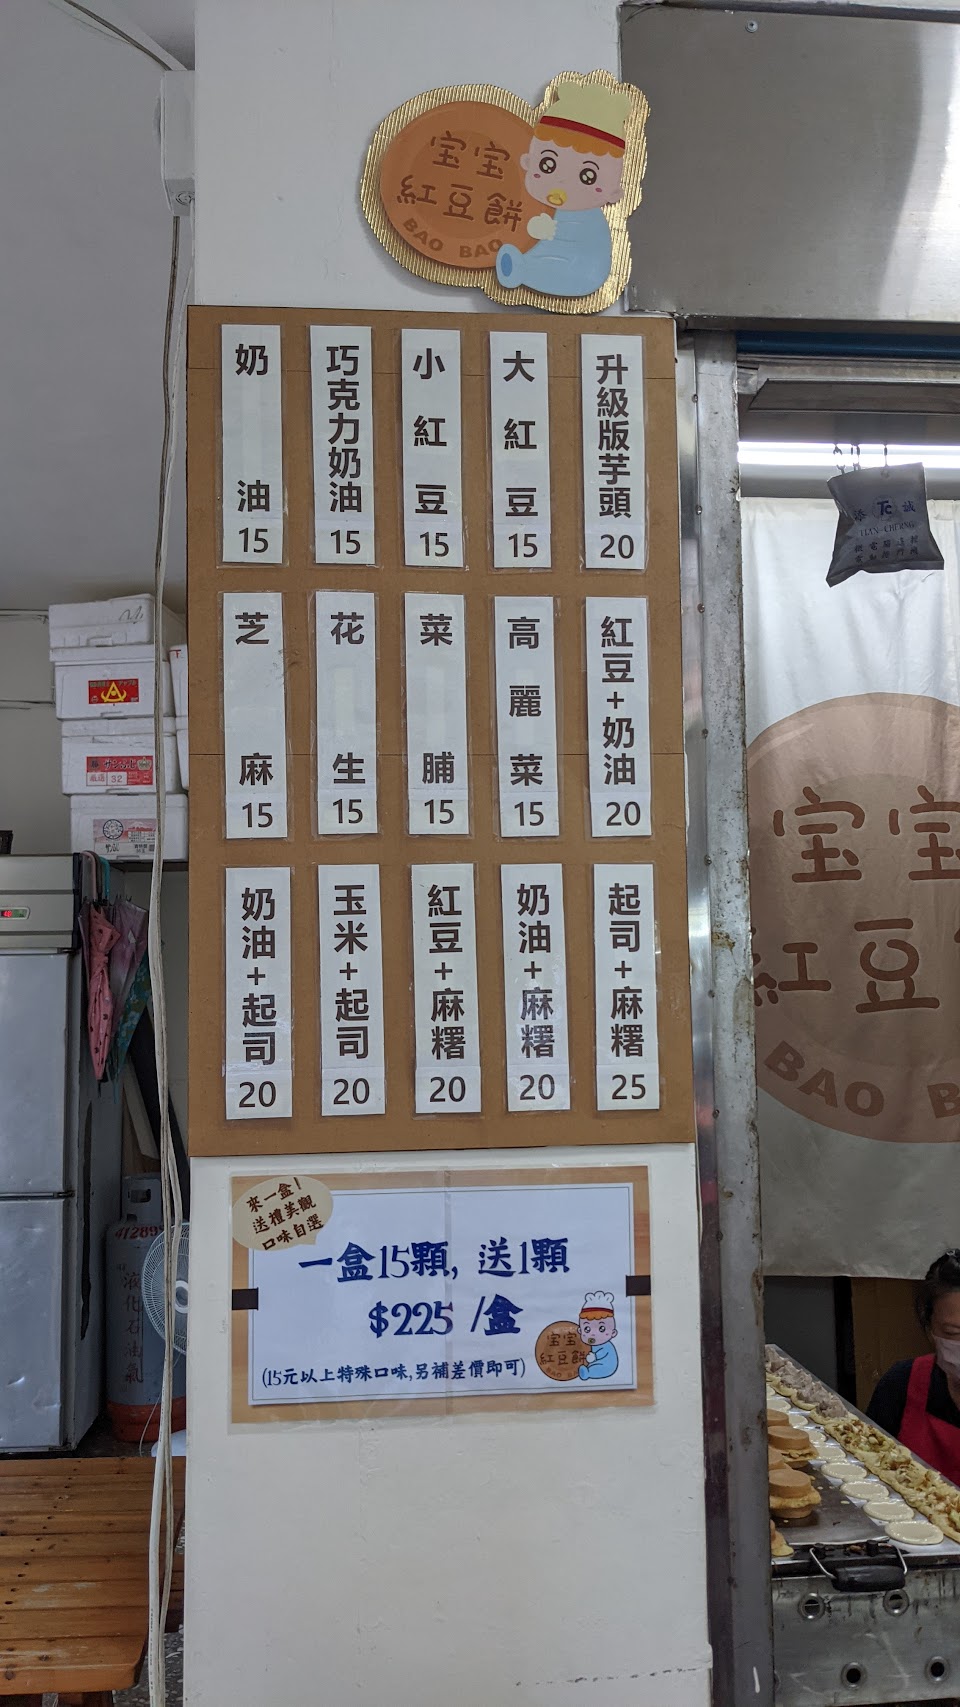 宝宝
紅豆餅
BAO BAO
奶油 15
巧克力奶油 15
小紅豆 15
大紅豆 15
升級版芋頭 20
芝麻 15
花生 15
菜脯 15
高麗菜 15
紅豆+奶油 20
奶油+起司 20
玉米+起司 20
紅豆+麻糬 20
奶油+麻糬 20
起司+麻糬 25
來一盒!
送禮美觀
口味自選
一盒15顆, 送1顆
$225 /盒
(15元以上特殊口味,另補差價即可)
宝宝
紅豆餅
添 TC 誠
宝宝
紅豆
BAO B
サンふじ
32
液化石油氣